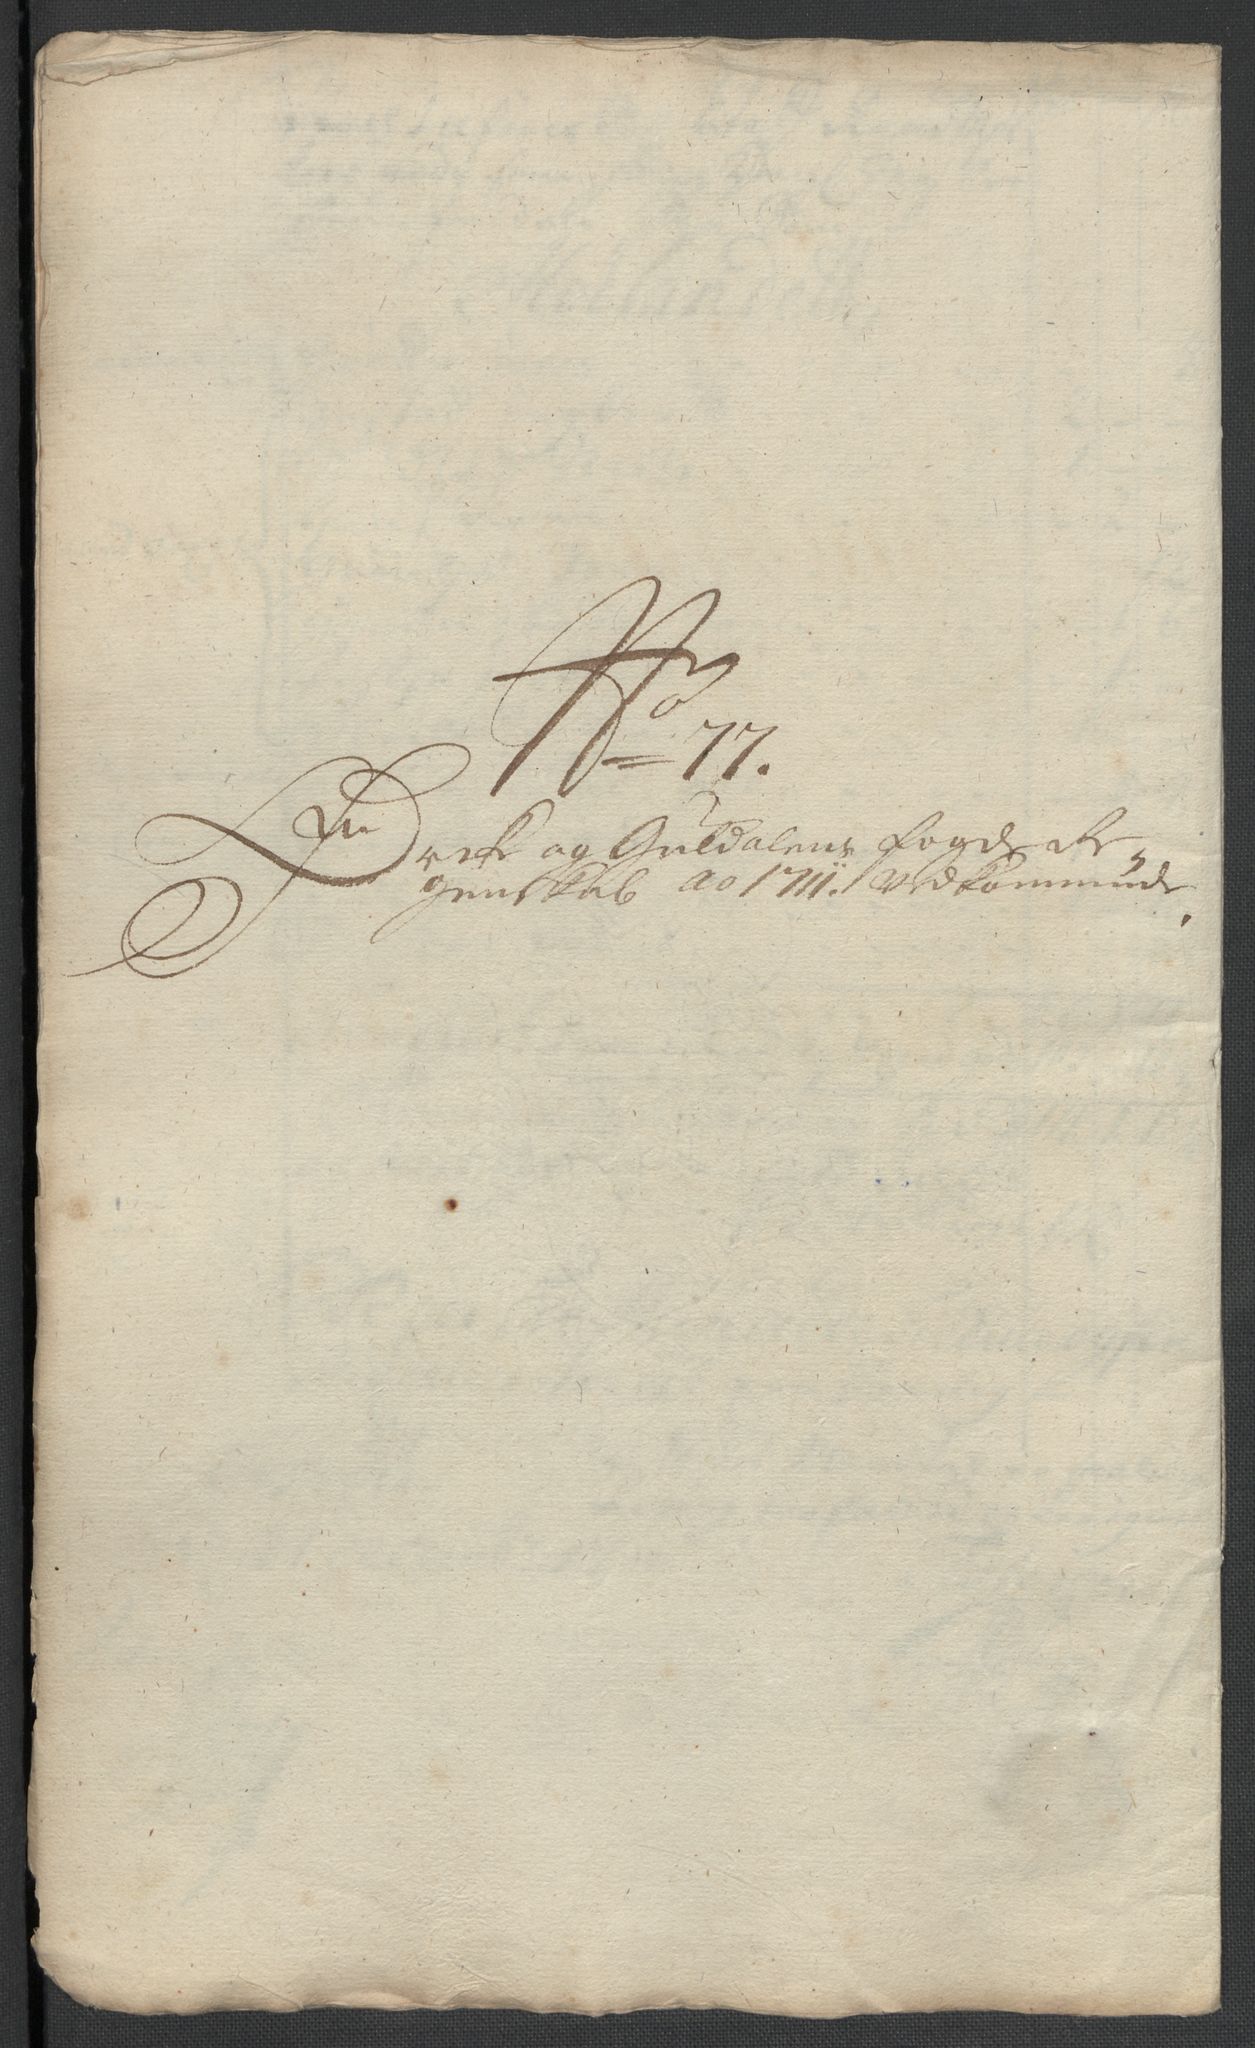 No 77.
Strinde og Guldalens fogderie Re=
genskab ao 1711. Vedkommende